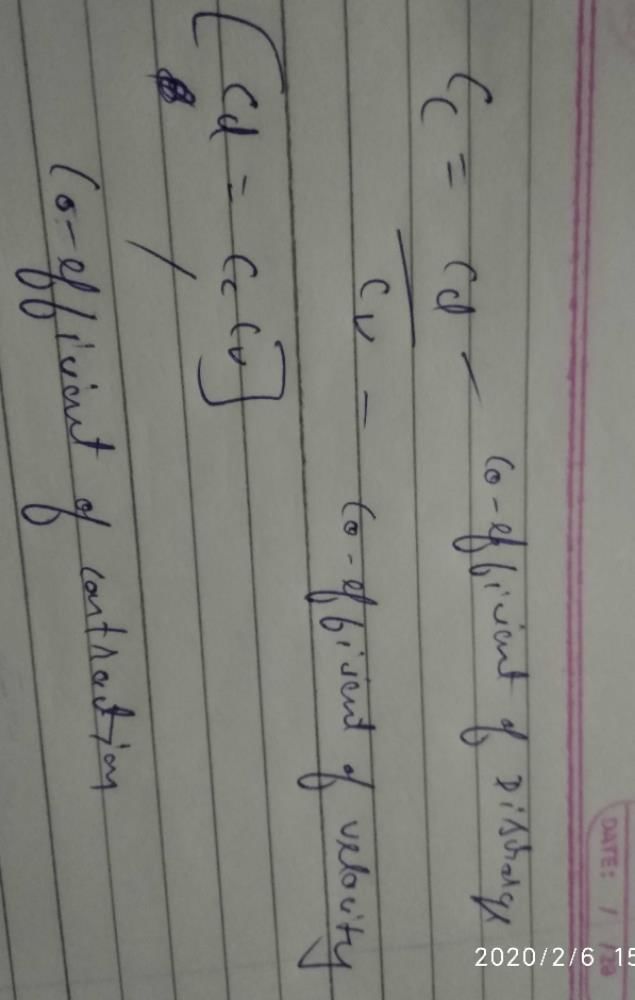 DATE: / /20
Cc = Cd - Co-efficient of Discharge
Cv - Co-efficient of velocity
[Cd = Cc Cv]
Co-efficient of contraction
2020/2/6 15